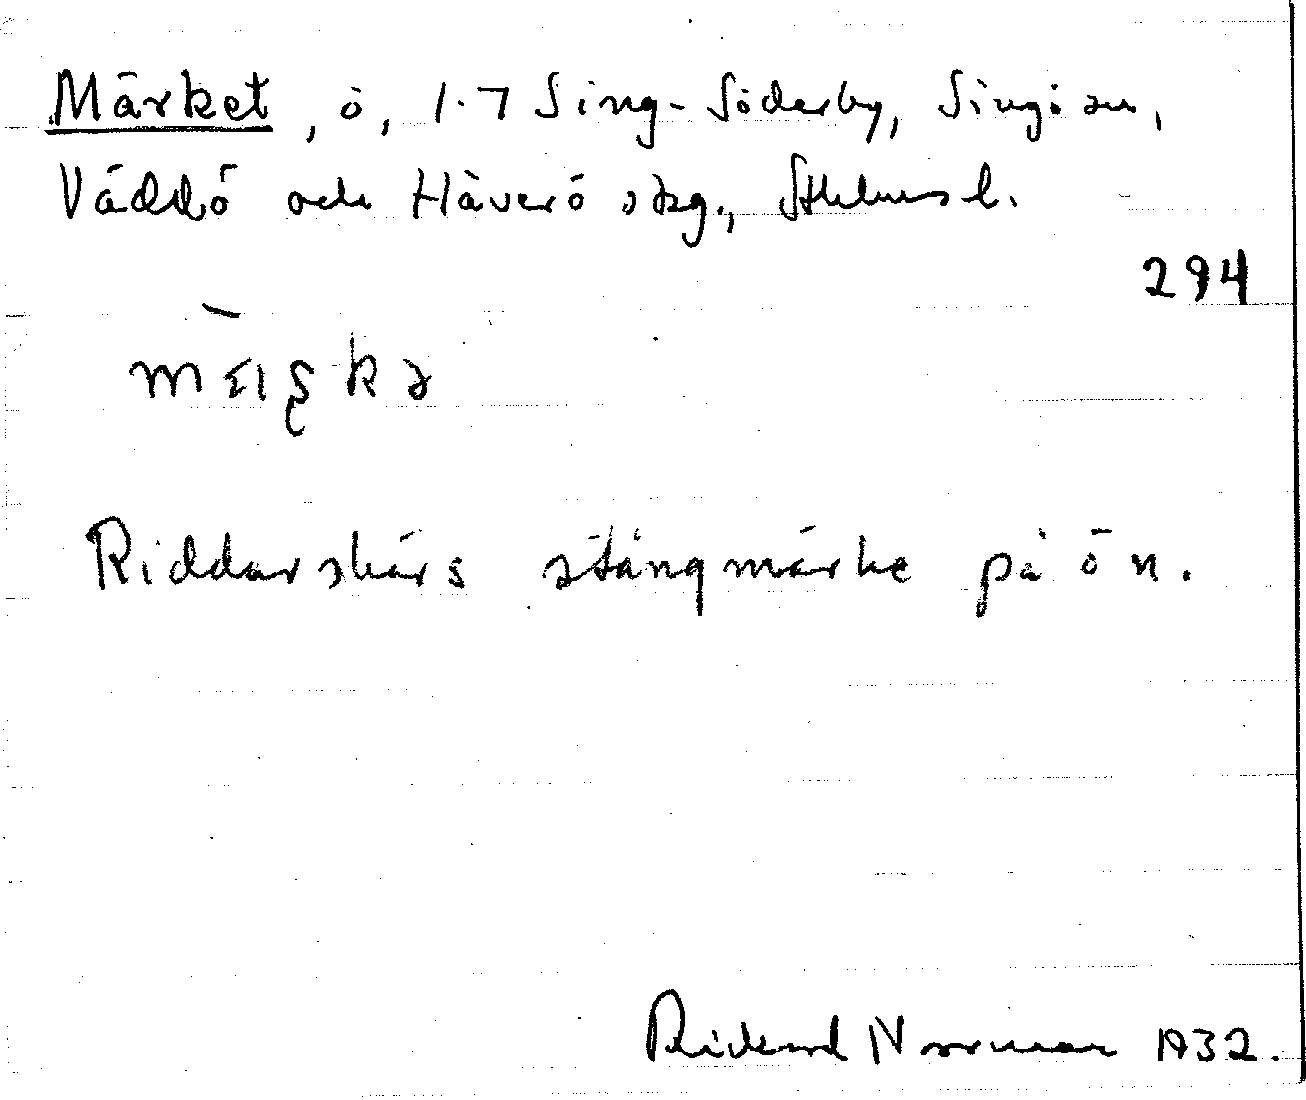 Märket, ö, 1-7 Sing-Söderby, Singö sn,
Väddö och Häverö skg., Sthlms l.
294
Riddarskärs stångmärke på ön.
Rickard Norrman 1932.